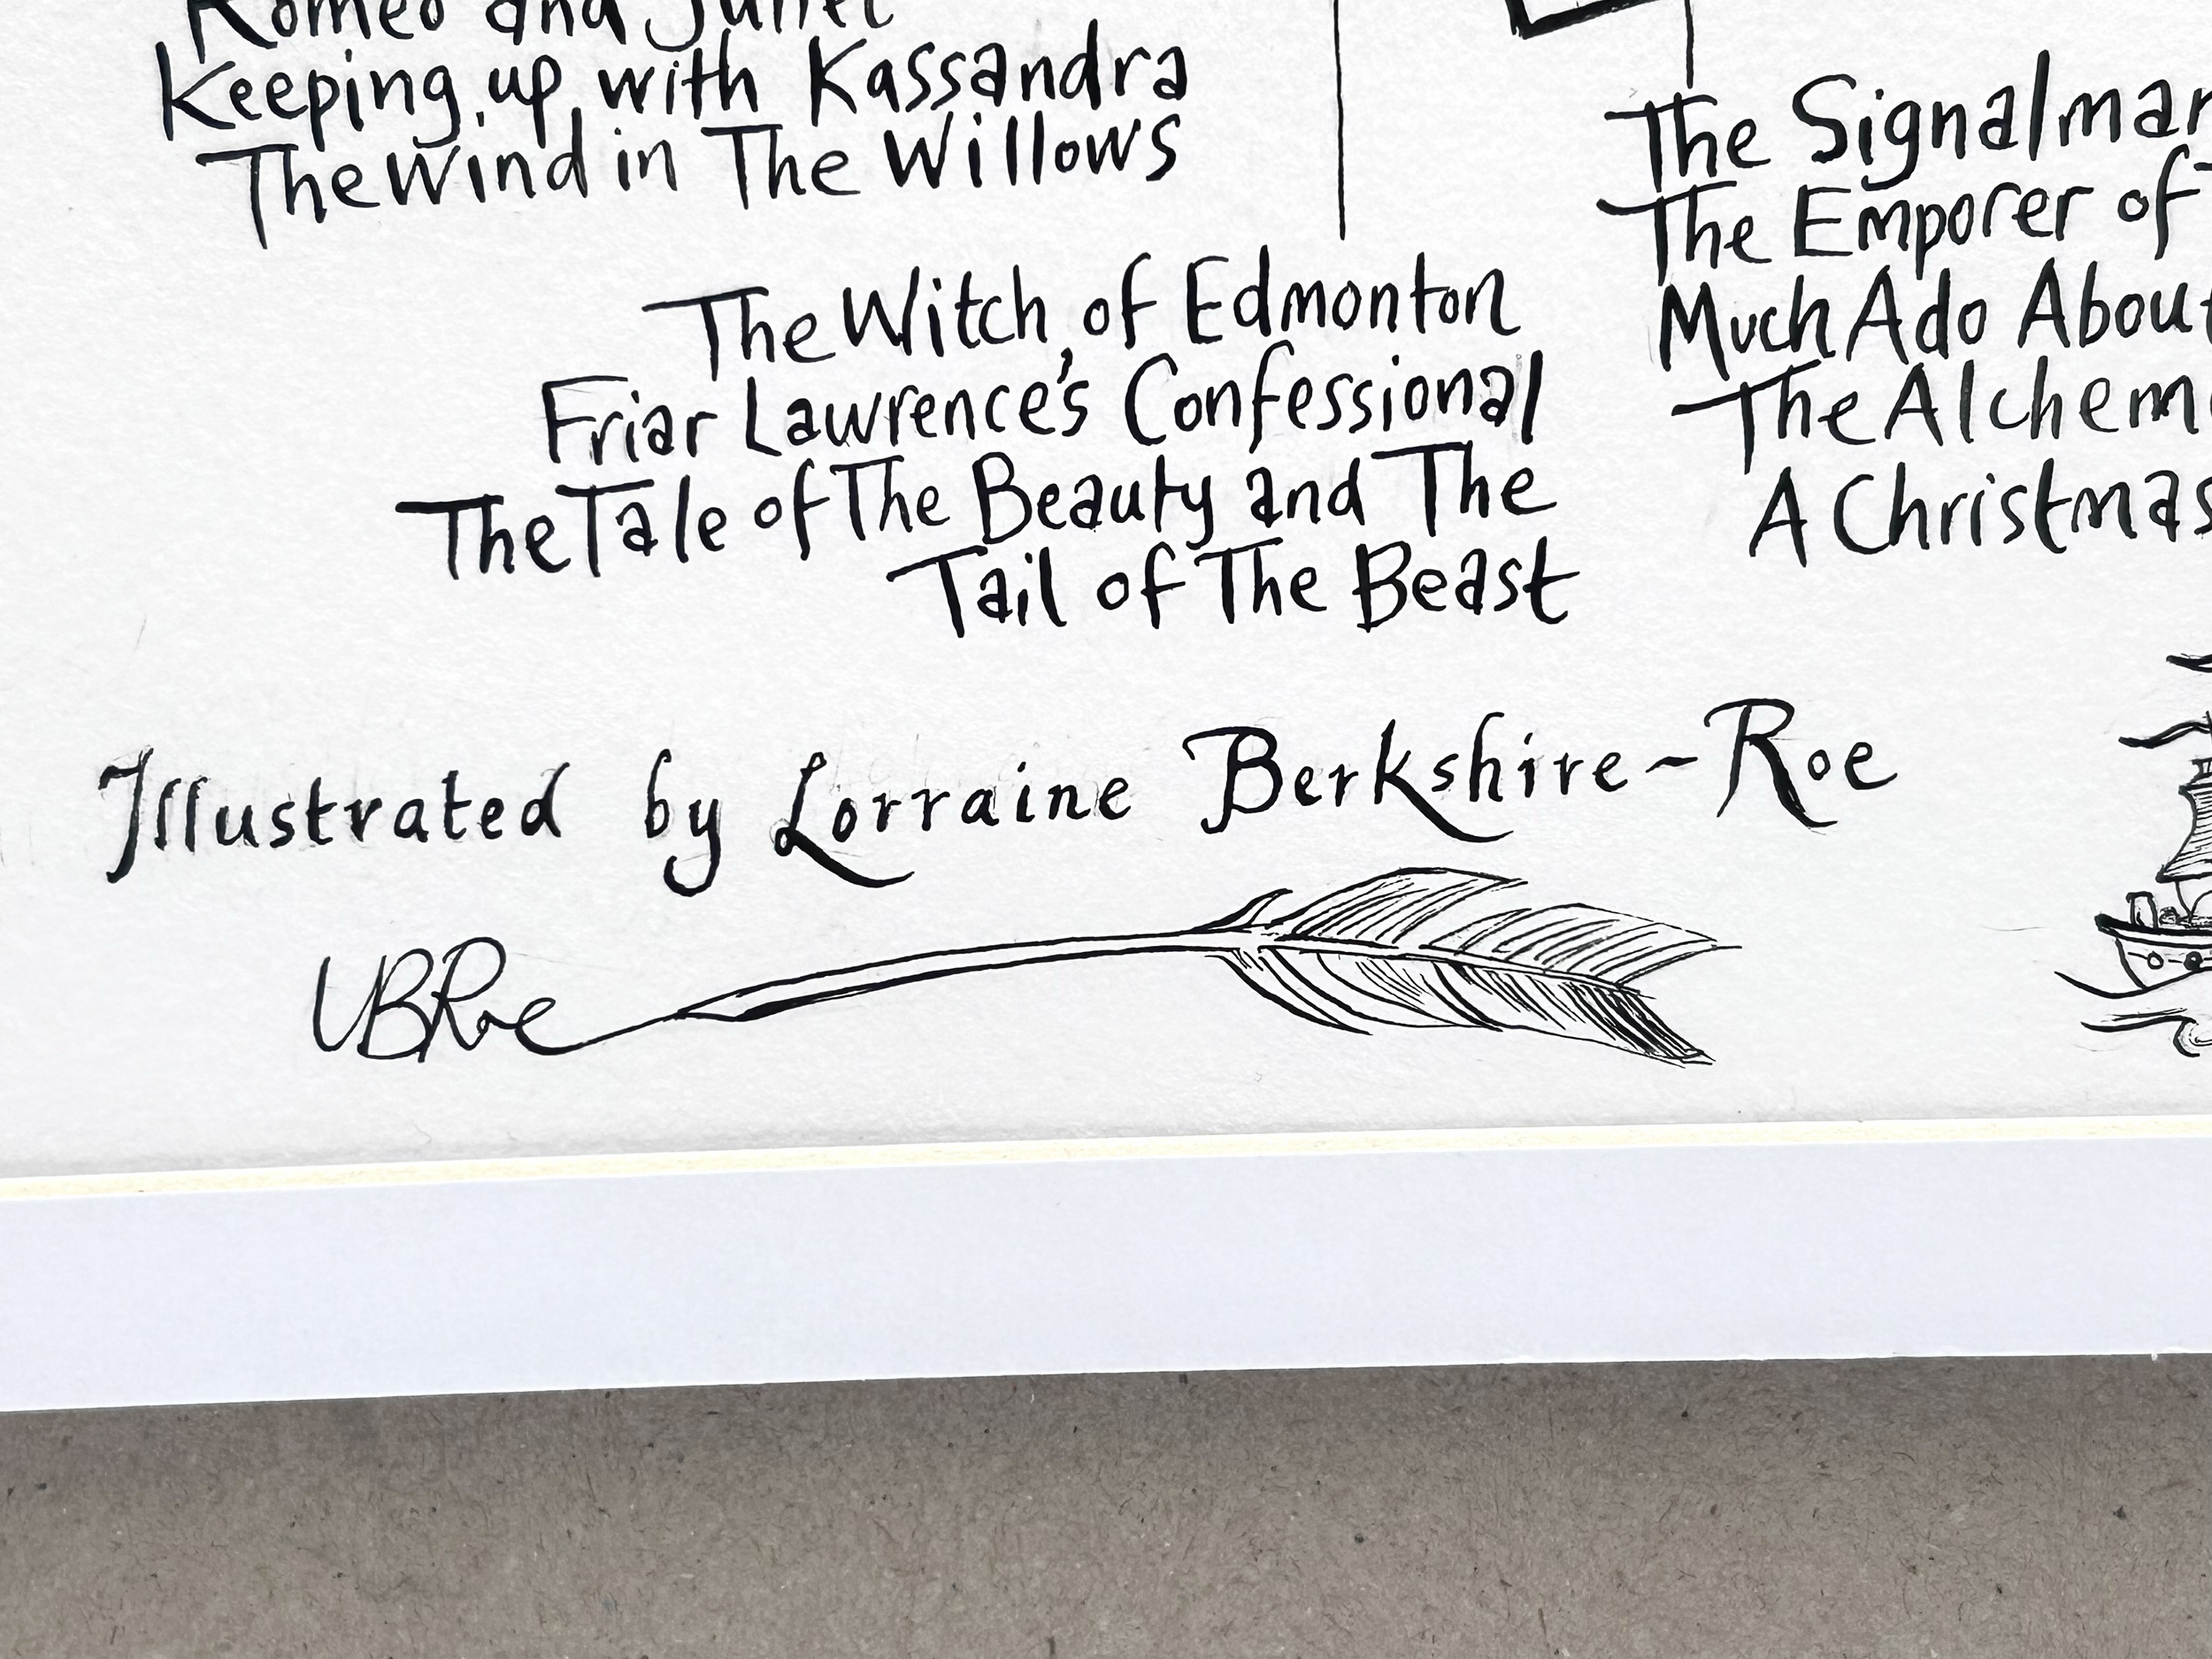 Romeo and Juliet
Keeping up with Kassandra
The Wind in The Willows
The Witch of Edmonton
Friar Lawrence's Confessional
The Tale of The Beauty and The
Tail of The Beast
The Signalman
The Emporer of
Much Ado About
The Alchem
A Christmas
Illustrated by Lorraine Berkshire~Roe
LBRoe